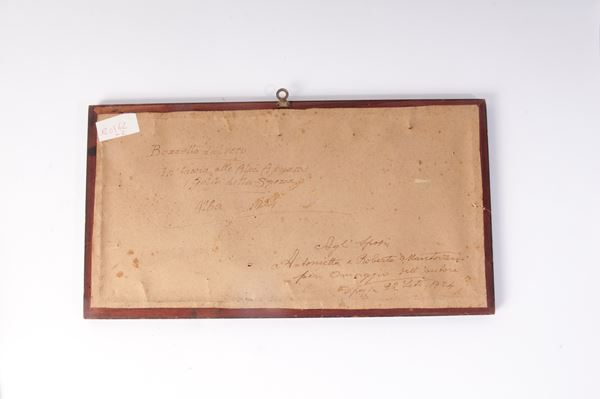 Bozzetto dal vero
In barca alle Alpi Apuane
Golfo della Spezia
Alba 1924
Agli Sposi
Antonietta e Roberto
per Omaggio dell'autore
Spezia 1924